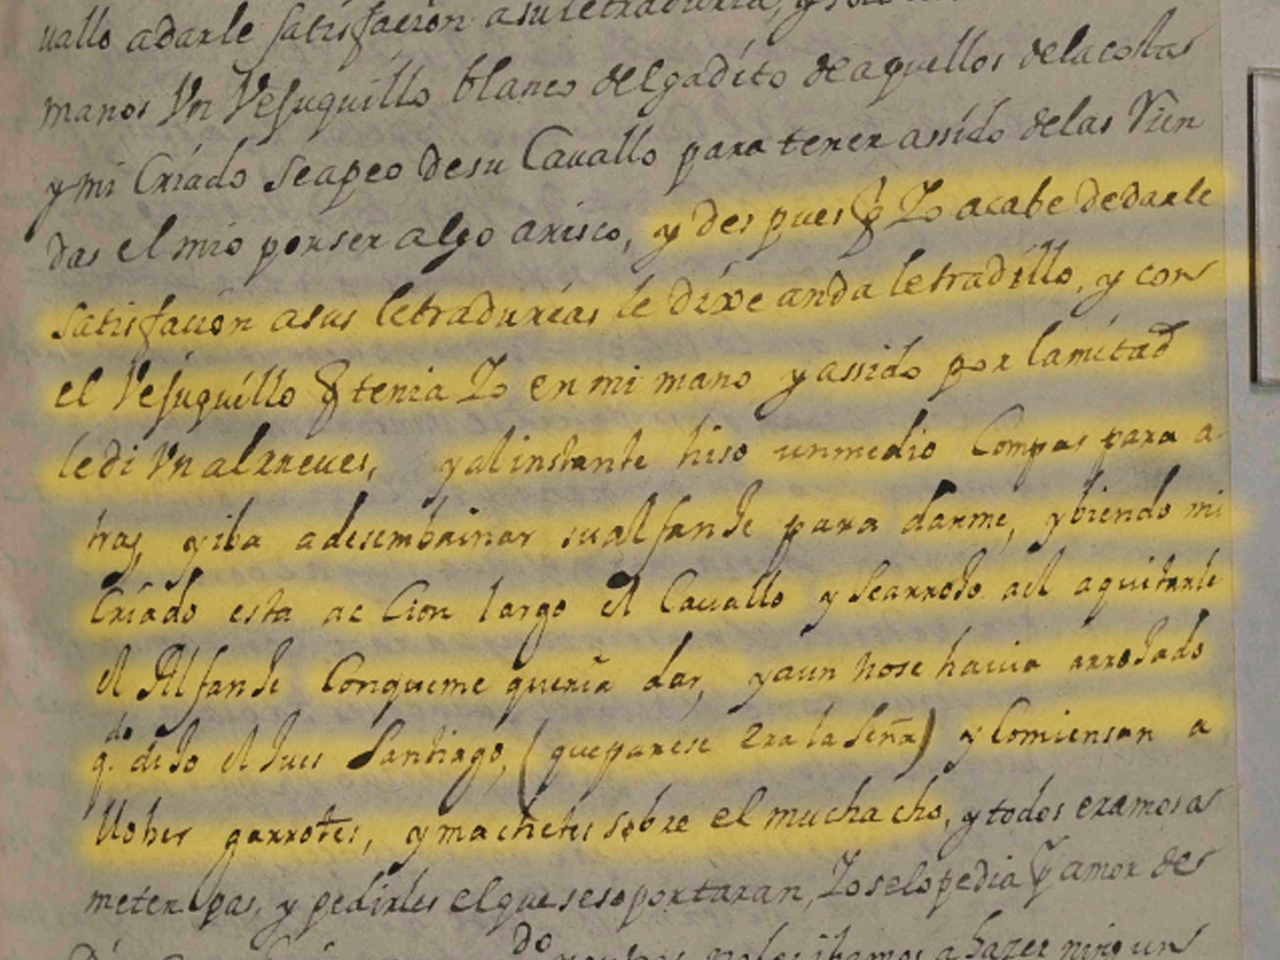 uallo adarle satisfacion asu letraduria, y
manos Vn Vejuquillo blanco delgadito de aquellos dela costa
y mi Criado se apeo de su Cauallo para tener assido delas Rien
das el mio por ser algo arisco, y despues q̃ Yo acabe dedarle
satisfacion asus letradurias le dixe anda letradillo, y con
el Vejuquillo q̃ tenia Yo en mi mano y assido por lamitad
ledi Vn alreues, y al instante hiso unmedio Compas para a
tras, y iba adesembainar su alfanje para darme, y biendo mi
Criado esta accion largo el Cauallo y se arrojo a el aquitarle
el Alfanje Conqueme queria dar, y aun nose hauia arrojado
q.do dijo el Jues Santiago, (queparese era la seña) y Comiensan a
llober garrotes, y machetes sobre el muchacho, y todos eramos a
meter pas, y pedirles el que se soportaran, Yo selo pedia p̱ amor de
do
nolos ibamos a hazer ningun